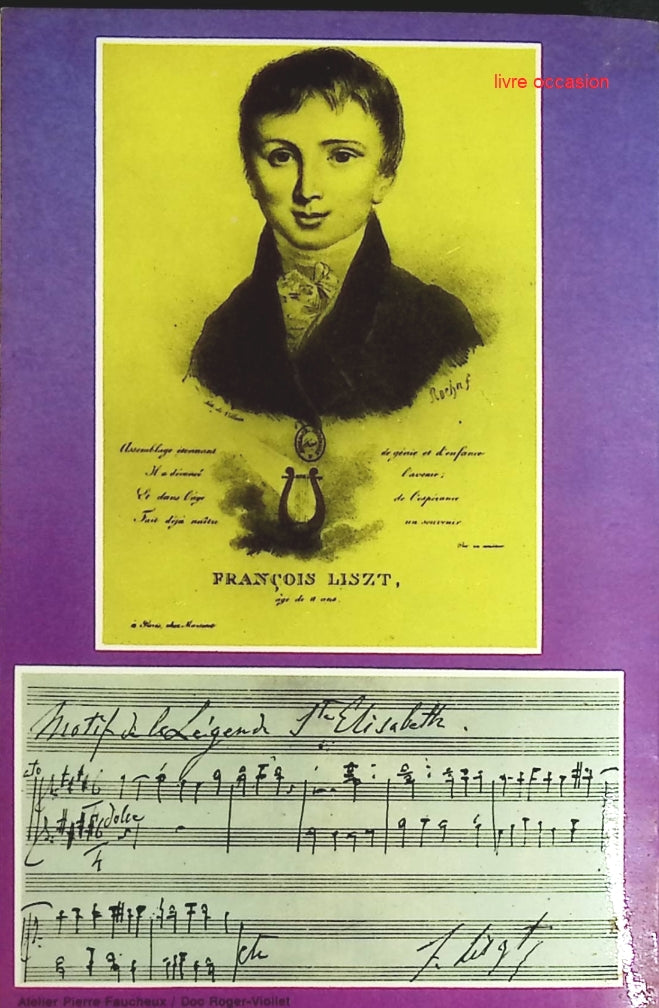 livre occasion
Rochas
Assemblage étonnant de génie et d'enfance
Il a dévancé l'avenir;
Et dans l'âge de l'espérance
Fait déjà naître un souvenir
FRANÇOIS LISZT,
âgé de 11 ans.
à Paris, chez
Motif de la Légende Ste Elisabeth.
dolce
etc
F. Liszt
Atelier Pierre Faucheux / Doc Roger-Viollet